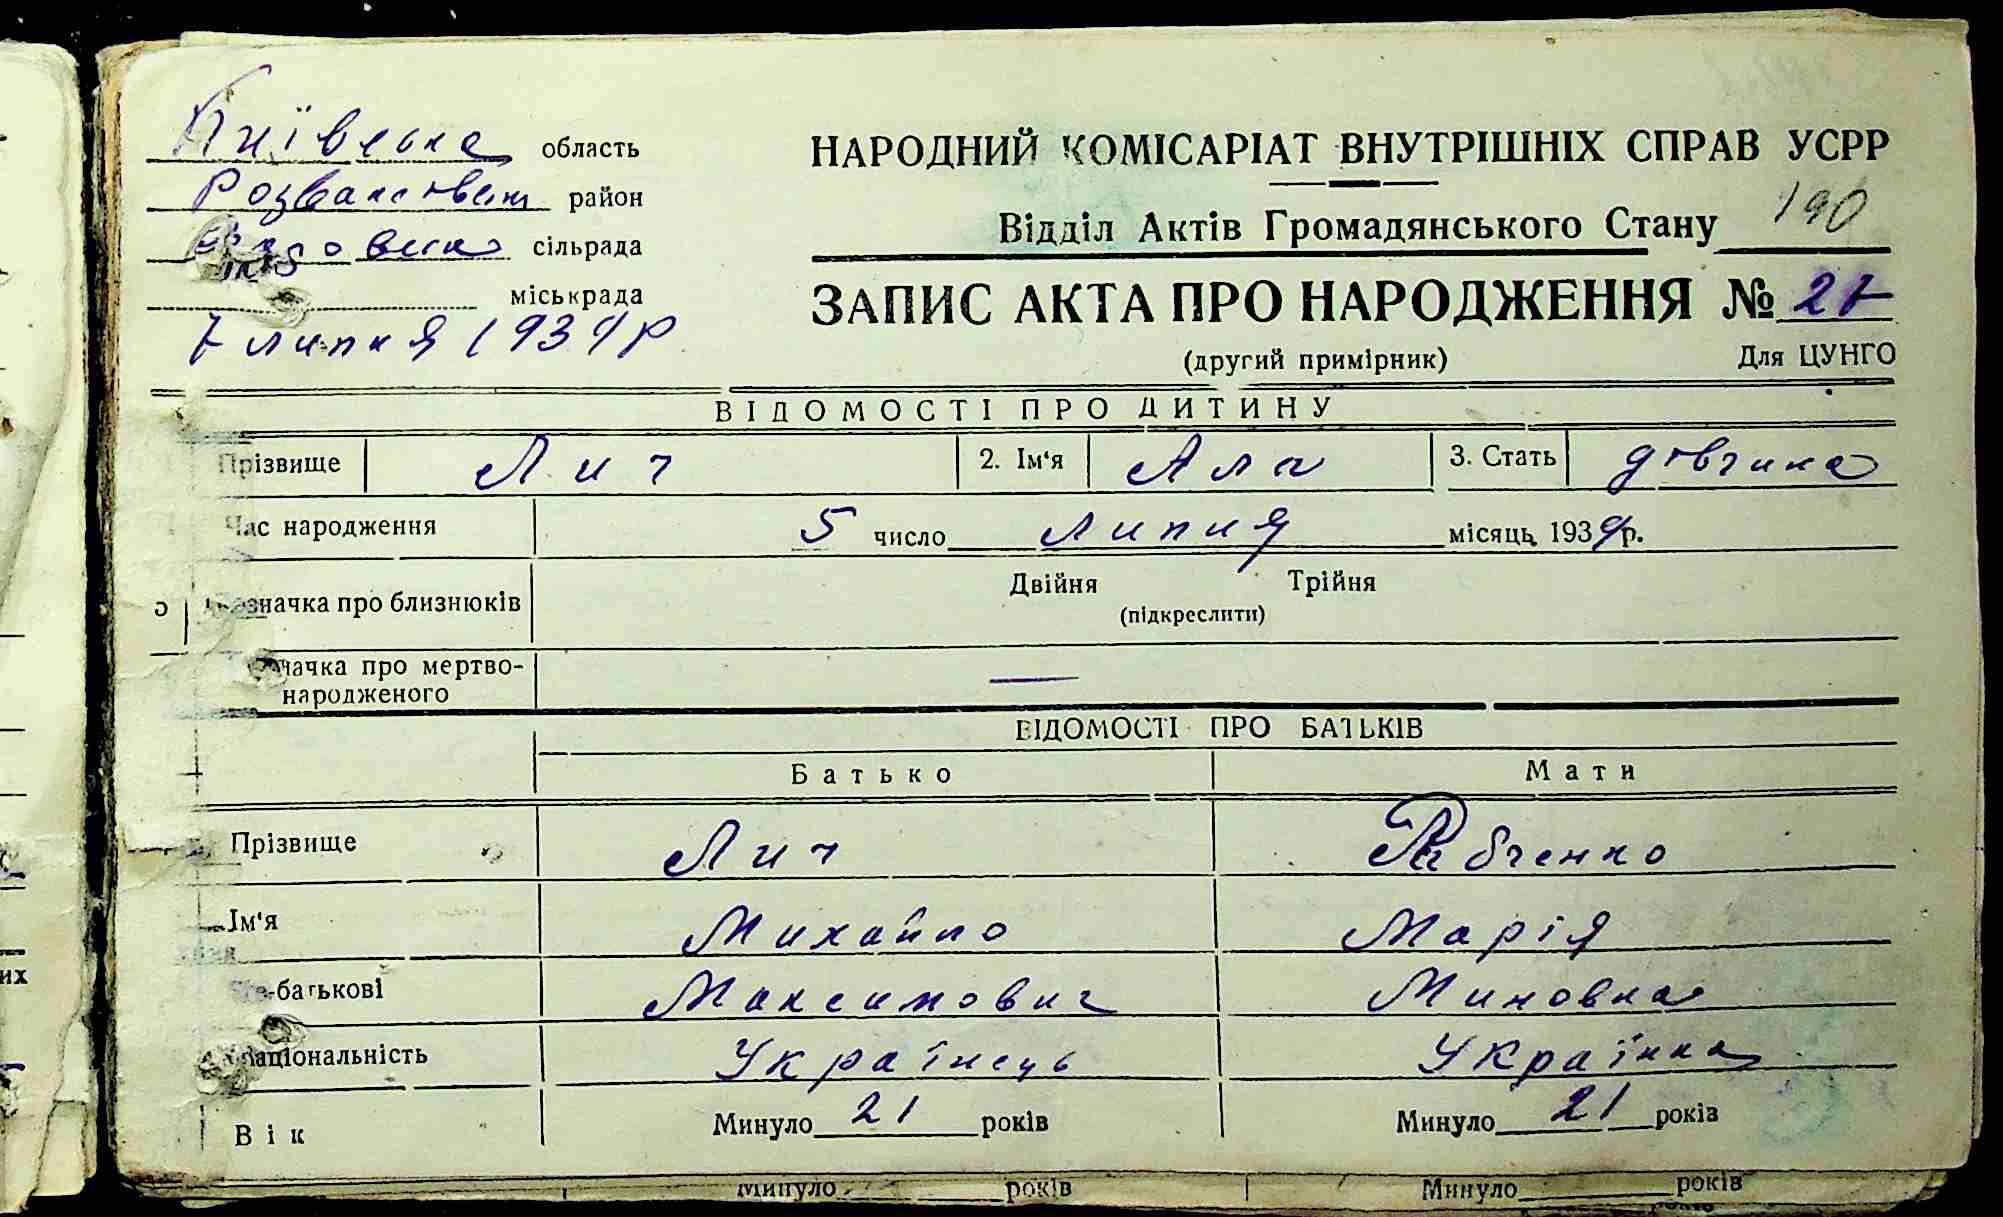 Київська область
Розважівськ район
сільрада
міськрада
7 липня 1939р
НАРОДНИЙ КОМІСАРІАТ ВНУТРІШНІХ СПРАВ УСРР
190
Відділ Актів Громадянського Стану
ЗАПИС АКТА ПРО НАРОДЖЕННЯ № 27
(другий примірник) Для ЦУНГО
ВІДОМОСТІ ПРО ДИТИНУ
Прізвище Лич 2. Ім'я Ала 3. Стать дівчина
Час народження 5 число липня місяць 1939р.
Двійня Трійня
значка про близнюків
(підкреслити)
значка про мертво-
народженого —
ВІДОМОСТІ ПРО БАТЬКІВ
Батько Мати
Прізвище Лич Рабченко
Ім'я Михайло Марія
По-батькові Максимович Миновна
Національність Українець Українка
Вік Минуло 21 років Минуло 21 років
Минуло років Минуло років